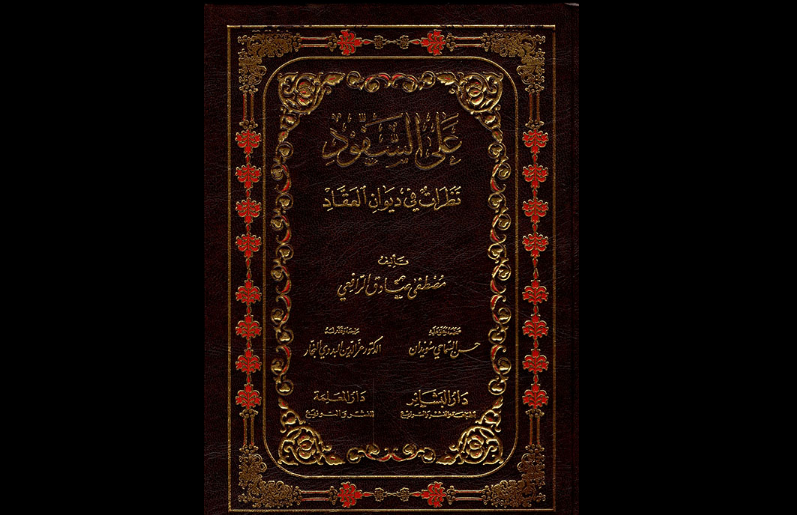 عَلَى السَّفُّودِ
نَظَرَاتٌ فِي دِيوَانِ العَقَّادِ
تَأليف
مُصْطَفَى صَادِق الرَّافِعِي
حسن السماحي سويدان
الدكتور عز الدين البدوي النجار
دَارُ البَشَائِر
دَارُ المَعَلَّقَة
للنشر والتوزيع